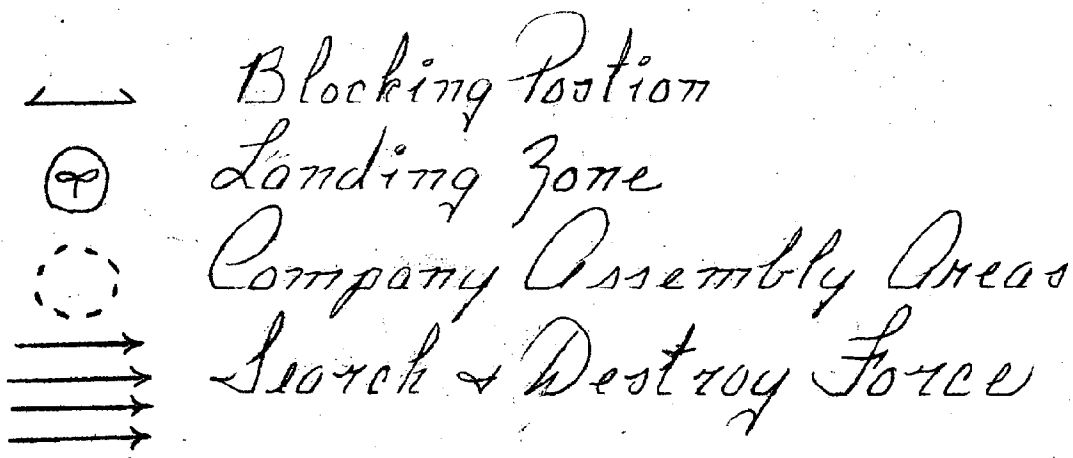 Blocking Postion
Landing Zone
Company Assembly Areas
Search & Destroy Force